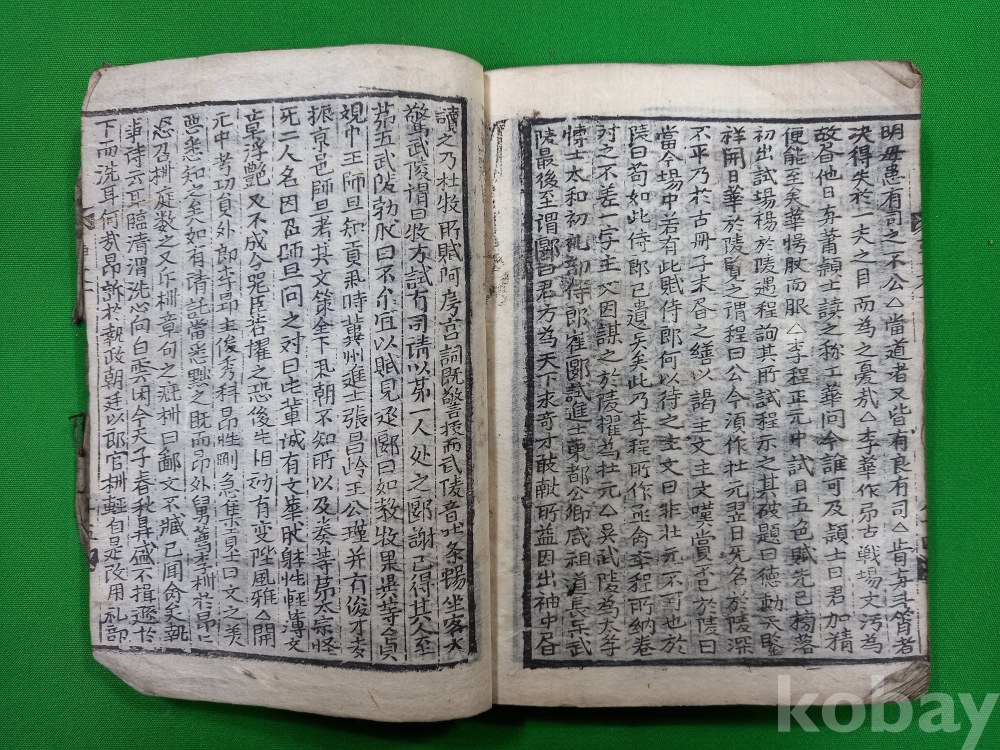 明毋患有司之不公△當道者又皆有良有司△肯与斗筲者
决得失於一夫之目而為之憂㢤△李華作吊古戦場文汚為
故告他日与蕭頴士读之称工華問今誰可及頴士曰君加精
便能至矣華愕肰而服△李程正元中試日五色賦先已榜落
初出試場楊於陵遇程詢其所試程示之其破題曰德動天鑒
祥開日華於陵覧之謂程曰公今須作壯元翌日旡名於陵深
不平乃於古冊子末昏之繕以謁主文主文嘆賞不已於陵曰
當今場中若有此賦侍郎何以待之主文曰非壯元不可也於
陵曰苟如此侍郎已遺矣此乃李程所作亟命李程所納卷
対之不差一字主文因謀之於陵擢為壯元△吳武陵為大李
博士太和初礼部侍郎崔郾試進士東都公卿咸祖道長乐武
陵最後至謂郾曰君方為天下求奇才敢献所益因出袖中昏
讀之乃杜牧所賦阿房宫詞既警抜而武陵音吐条暢坐客大
驚武陵謂曰牧方試有司請以第一人处之郾謝已得其人至
苐五武陵勃肰曰不尒宜以賦見还郾曰如教牧果異等△貞
覌中王師旦知貢㪯時兾州進士張昌岭王公瑾并有俊才
振京邑師旦考其文策全下㪯朝不知所以及奏等苐太宗怪
死二人名因召師旦问之対曰此軰诚有文華肰躰性軽薄文
章浮艶又不成令器臣若擢之恐後生相効有変陛風雅△開
元中考功負外郎李昂主俊秀科昂性剛急集貢士曰文之美
悪悉知之矣如有請託當悉黜之既而昂外舅荐李权於昂
怒召权庭数之又斥权章句之疵权曰鄙文不臧已聞命矣執
事诗云耳臨清渭洗心向白雲闲今天子春秋昇盛不揖遜於
下而洗耳何㢤昂訴於執政朝廷以郎官权軽自是改用礼部